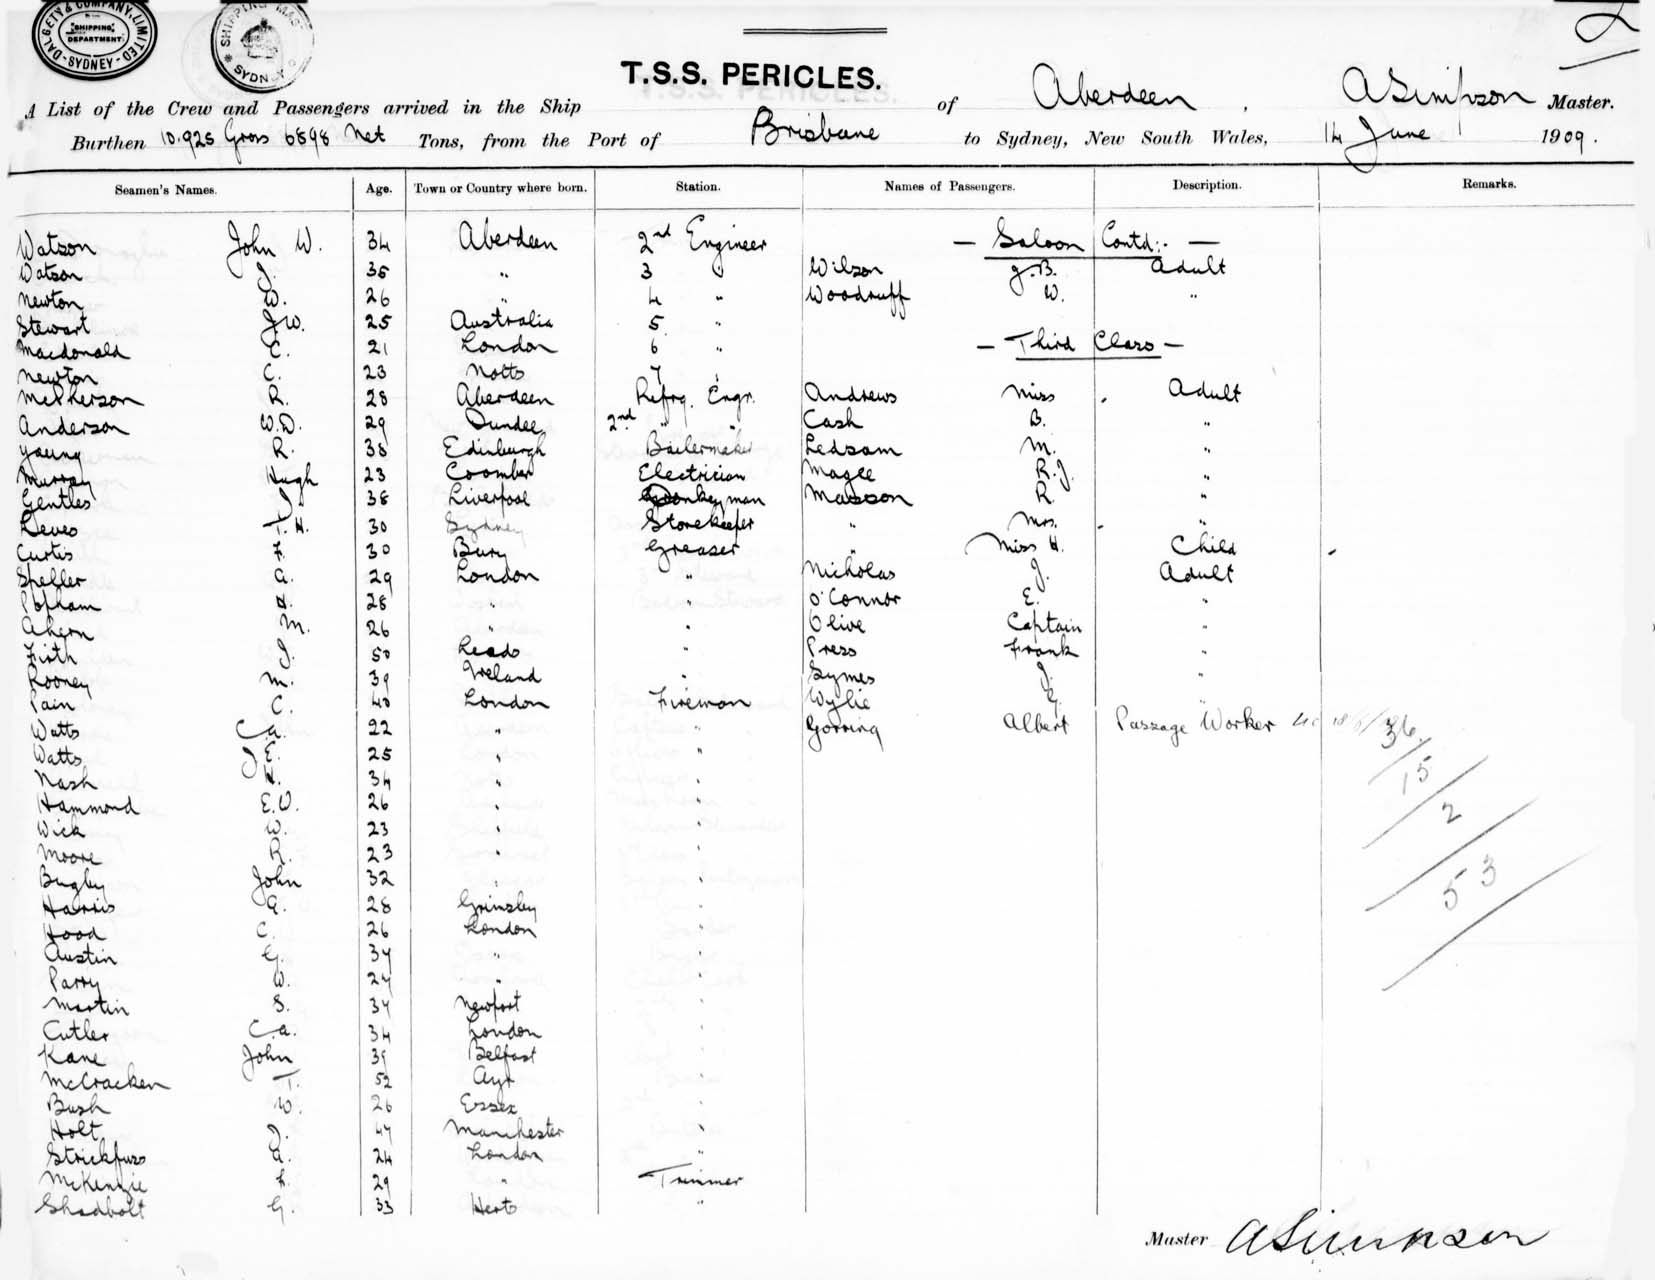 DALGETY & COMPANY, LIMITED
SHIPPING DEPARTMENT
SYDNEY
SHIPPING MAS
SYDNEY
2
T.S.S. PERICLES.
A List of the Crew and Passengers arrived in the Ship of Aberdeen, A Simpson Master.
Burthen 10.925 Gross 6898 Net Tons, from the Port of Brisbane to Sydney, New South Wales, 14 June 1909.
Seamen's Names. Age. Town or Country where born. Station. Names of Passengers. Description. Remarks.
Watson John W. 34 Aberdeen 2nd Engineer — Saloon Contd:- —
Watson J. 35 " 3 " Wilson J.B. Adult
Newton W. 26 " 4 " Woodruff W. "
Stewart J.W. 25 Australia 5 "
Macdonald C. 21 London 6 " — Third Class —
Newton C. 23 Notts 7 "
McPherson R. 28 Aberdeen Refrg. Engr. Andrews Miss Adult
Anderson W.D. 29 Dundee 2nd " " Cash B. "
Young R. 38 Edinburgh Boilermaker Ledsam M. "
Murray Hugh 23 Coomber Electrician Magee R.J. "
Gentles J. 38 Liverpool Donkeyman Masson R. "
Leves H. 30 Sydney Storekeeper " Mrs. "
Curtis F. 30 Bury Greaser " Miss H. Child
Speller A. 29 London " Nicholas J. Adult
Popham H. 28 " " O'Connor E. "
Ahern M. 26 " " Olive Captain "
Firth J. 50 Leeds " Press Frank "
Rooney M. 39 Ireland " Symes J. "
Pain C. 40 London Fireman Wylie E. "
Watts C.A. 22 " " Gorring Albert Passage Worker
Watts J.E. 25 " "
Nash H. 34 " "
Hammond E.V. 26 " "
Wick W. 23 " "
Moore R. 23 " "
Bugby John 32 " "
Harris G. 28 Grimsby "
Hood C. 26 London "
Austin G. 37 " "
Parry W. 27 " "
Martin S. 37 Newport "
Cutler C.A. 34 London "
Kane John 39 Belfast "
McCracken T. 52 Ayr "
Bush W. 26 Essex "
Holt J. 47 Manchester "
Strickfuss A. 24 London "
McKenzie F. 29 " Trimmer
Shadbolt G. 33 Herts "
36
15
2
53
Master A Simpson